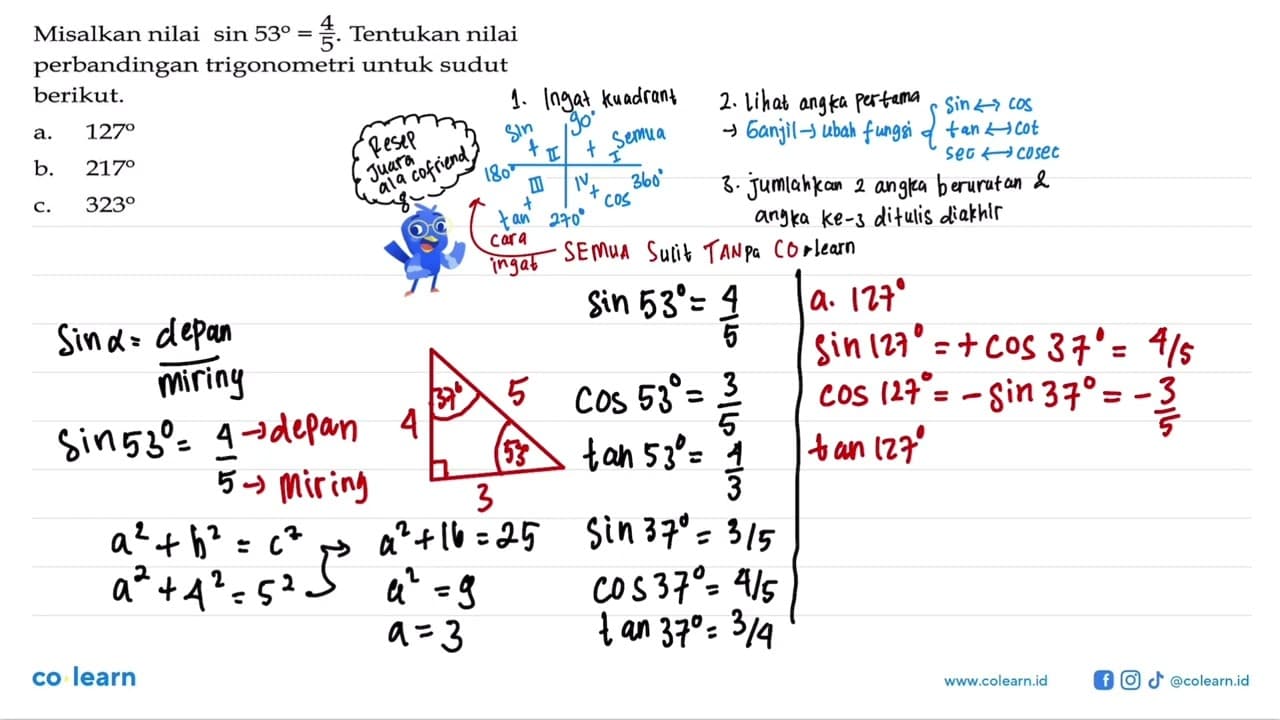 Misalkan nilai sin 53° = 4/5. Tentukan nilai
perbandingan trigonometri untuk sudut
berikut.
a. 127°
b. 217°
c. 323°
Resep
Juara
ala cofriend
1. Ingat kuadrant
sin + II
90°
Semua + I
180°
III + tan
270°
IV + cos
360°
cara
ingat
SEMUA Sulit TANpa CO-learn
2. Lihat angka pertama
→ Ganjil → ubah fungsi { sin ↔ cos
tan ↔ cot
sec ↔ cosec
3. Jumlahkan 2 angka berurutan &
angka ke-3 ditulis diakhir
sin α = depan/miring
sin 53° = 4/5
4 → depan
5 → miring
a² + b² = c²
a² + 4² = 5²
a² + 16 = 25
a² = 9
a = 3
37°
5
4
53°
3
sin 53° = 4/5
cos 53° = 3/5
tan 53° = 4/3
sin 37° = 3/5
cos 37° = 4/5
tan 37° = 3/4
a. 127°
sin 127° = + cos 37° = 4/5
cos 127° = - sin 37° = - 3/5
tan 127°
co·learn
www.colearn.id
@colearn.id